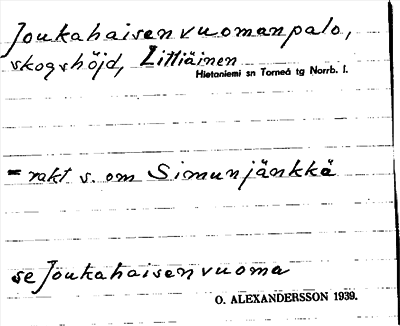 Joukahaisenvuomanpalo,
skogshöjd, Littiäinen
Hietaniemi sn Torneå tg Norrb. l.
= rakt s. om Simunjänkkä
se Joukahaisenvuoma
O. ALEXANDERSSON 1939.